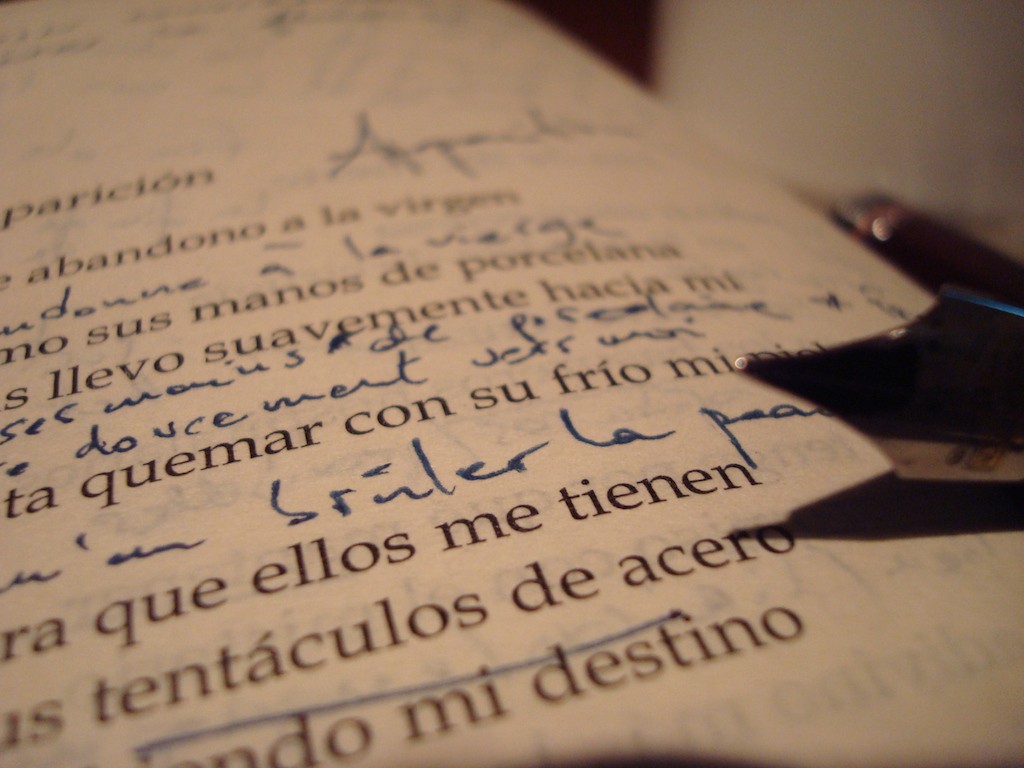 parición
e abandono a la virgen
à la vierge
mo sus manos de porcelana
s llevo suavemente hacia mi
ses mains de porcelaine
doucement vers moi
ta quemar con su frío mi
brûler la peau
ra que ellos me tienen
us tentáculos de acero
endo mi destino